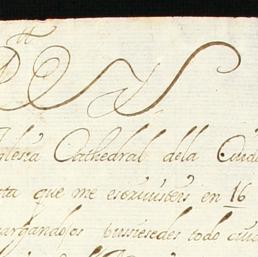 glesia Cathedral dela Ciud
ta que me escriuisteis en 16
argandoos pussiesedes todo cui